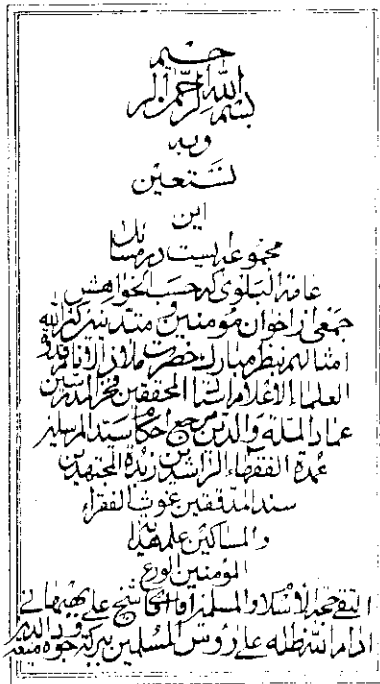 بسم الله الرحمن الرحیم
وبه
نستعین
این
مجموعه‌ایست در مسائل
عامة البلوی که حسب الخواهش
جمعی از اخوان مؤمنین و متدینین کثر الله
امثالهم بنظر مبارک حضرت ملاذ الانام قدوة
العلماء الاعلام استاد المحققین فخر المدرسین
عماد الملة والدین مرجع احکام سید المرسلین
عمدة الفقهاء الراشدین زبدة المجتهدین
سند المدققین غوث الفقراء
والمساکین علم
المؤمنین الورع
التقی حجة الاسلام والمسلمین آقای حاج شیخ علی بهبهانی
ادام الله ظله علی رؤس المسلمین ببرکة وجوده